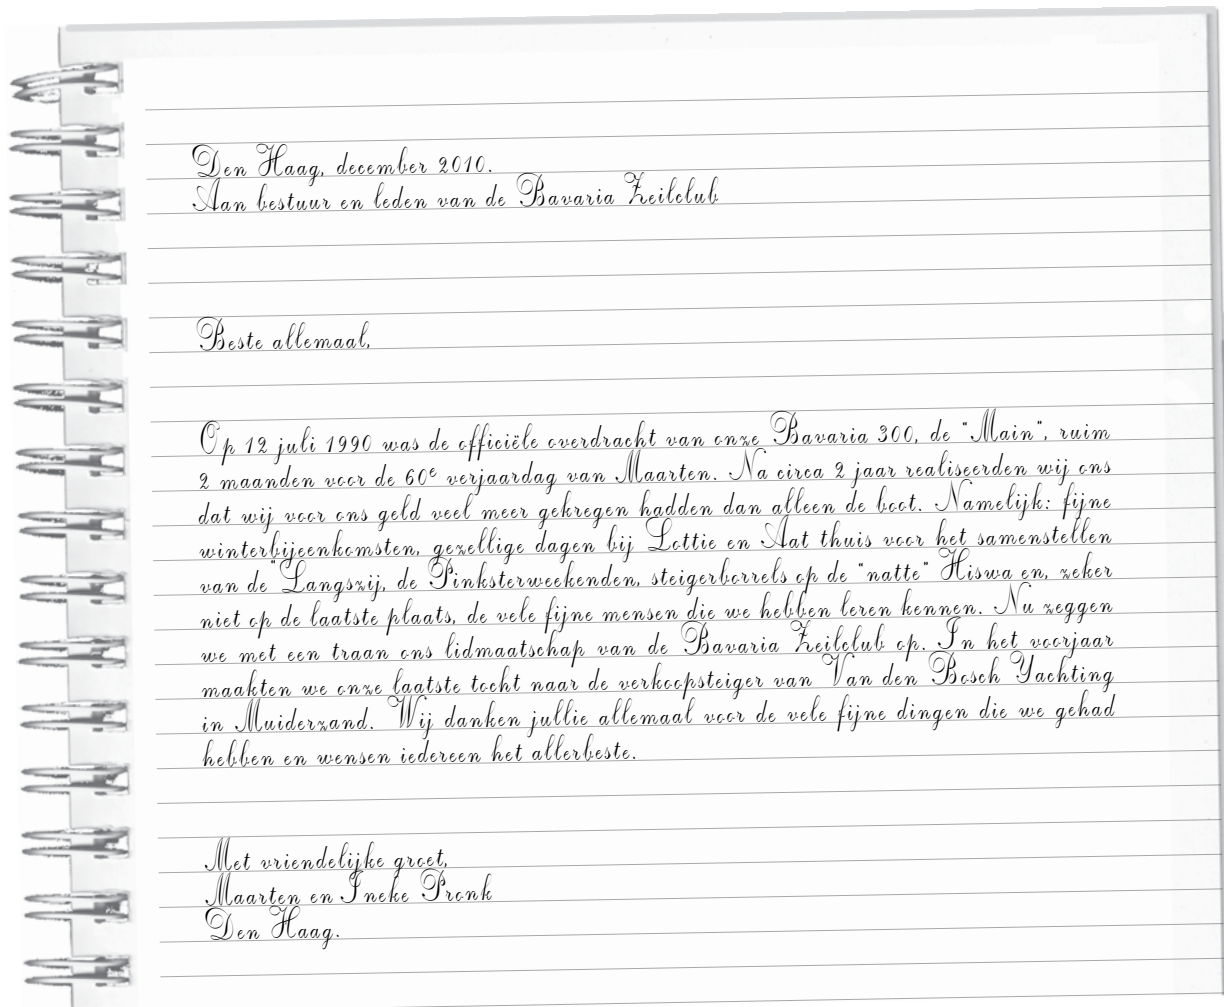 Den Haag, december 2010.
Aan bestuur en leden van de Bavaria Zeilclub
Beste allemaal,
Op 12 juli 1990 was de officiële overdracht van onze Bavaria 300, de "Main", ruim
2 maanden voor de 60e verjaardag van Maarten. Na circa 2 jaar realiseerden wij ons
dat wij voor ons geld veel meer gekregen hadden dan alleen de boot. Namelijk: fijne
winterbijeenkomsten, gezellige dagen bij Lottie en Aat thuis voor het samenstellen
van de "Langszij, de Pinksterweekenden, steigerborrels op de "natte" Hiswa en, zeker
niet op de laatste plaats, de vele fijne mensen die we hebben leren kennen. Nu zeggen
we met een traan ons lidmaatschap van de Bavaria Zeilclub op. In het voorjaar
maakten we onze laatste tocht naar de verkoopsteiger van Van den Bosch Yachting
in Muiderzand. Wij danken jullie allemaal voor de vele fijne dingen die we gehad
hebben en wensen iedereen het allerbeste.
Met vriendelijke groet,
Maarten en Ineke Pronk
Den Haag.